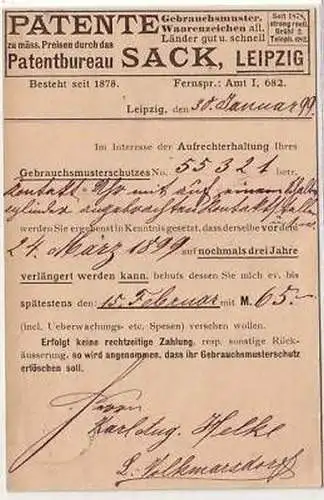 PATENTE Gebrauchsmuster.
Waarenzeichen all.
zu mäss. Preisen durch das Länder gut u. schnell
Patentbureau SACK, LEIPZIG
Seit 1878,
streng reell,
Brühl 2
Teleph. 682.
Besteht seit 1878. Fernspr.: Amt I, 682.
Leipzig, den 30. Januar 99.
Im Interesse der Aufrechterhaltung Ihres
Gebrauchsmusterschutzes No. 55321 betr.
Kontakt mit auf einem
cylinder angebrachten
werden Sie ergebenst in Kenntnis gesetzt, dass derselbe vor dem
24. März 1899 auf nochmals drei Jahre
verlängert werden kann, behufs dessen Sie mich ev. bis
spätestens den: 15. Februar mit M. 65.—
(incl. Ueberwachungs- etc. Spesen) versehen wollen.
Erfolgt keine rechtzeitige Zahlung, resp. sonstige Rück-
äusserung, so wird angenommen, dass ihr Gebrauchsmusterschutz
erlöschen soll.
Herrn
Karl Helke
L. Volkmarsdorf